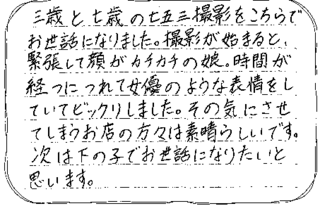 三歳と七歳の七五三撮影をこちらで
お世話になりました。撮影が始まると、
緊張して顔がカチカチの娘。時間が
経つにつれて女優のような表情をし
ていてビックリしました。その気にさせ
てしまうお店の方々は素晴らしいです。
次は下の子でお世話になりたいと
思います。